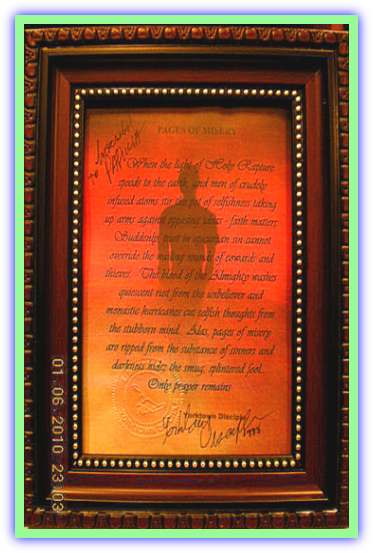 PAGES OF MISERY
to
When the light of Holy Rapture
speeds to the earth, and men of crudely
infused atoms stir the pot of selfishness taking
up arms against opposing ideas - faith matters.
Suddenly, trust in epicurean sin cannot
override the wailing sounds of cowards and
thieves. The blood of the Almighty washes
quiescent rest from the unbeliever and
monastic hurricanes cut selfish thoughts from
the stubborn mind. Alas, pages of misery
are ripped from the substance of sinners and
darkness hides the smug, splintered fool...
Only prayer remains
Yorktown Disciple
1998
01.06.2010 23:03